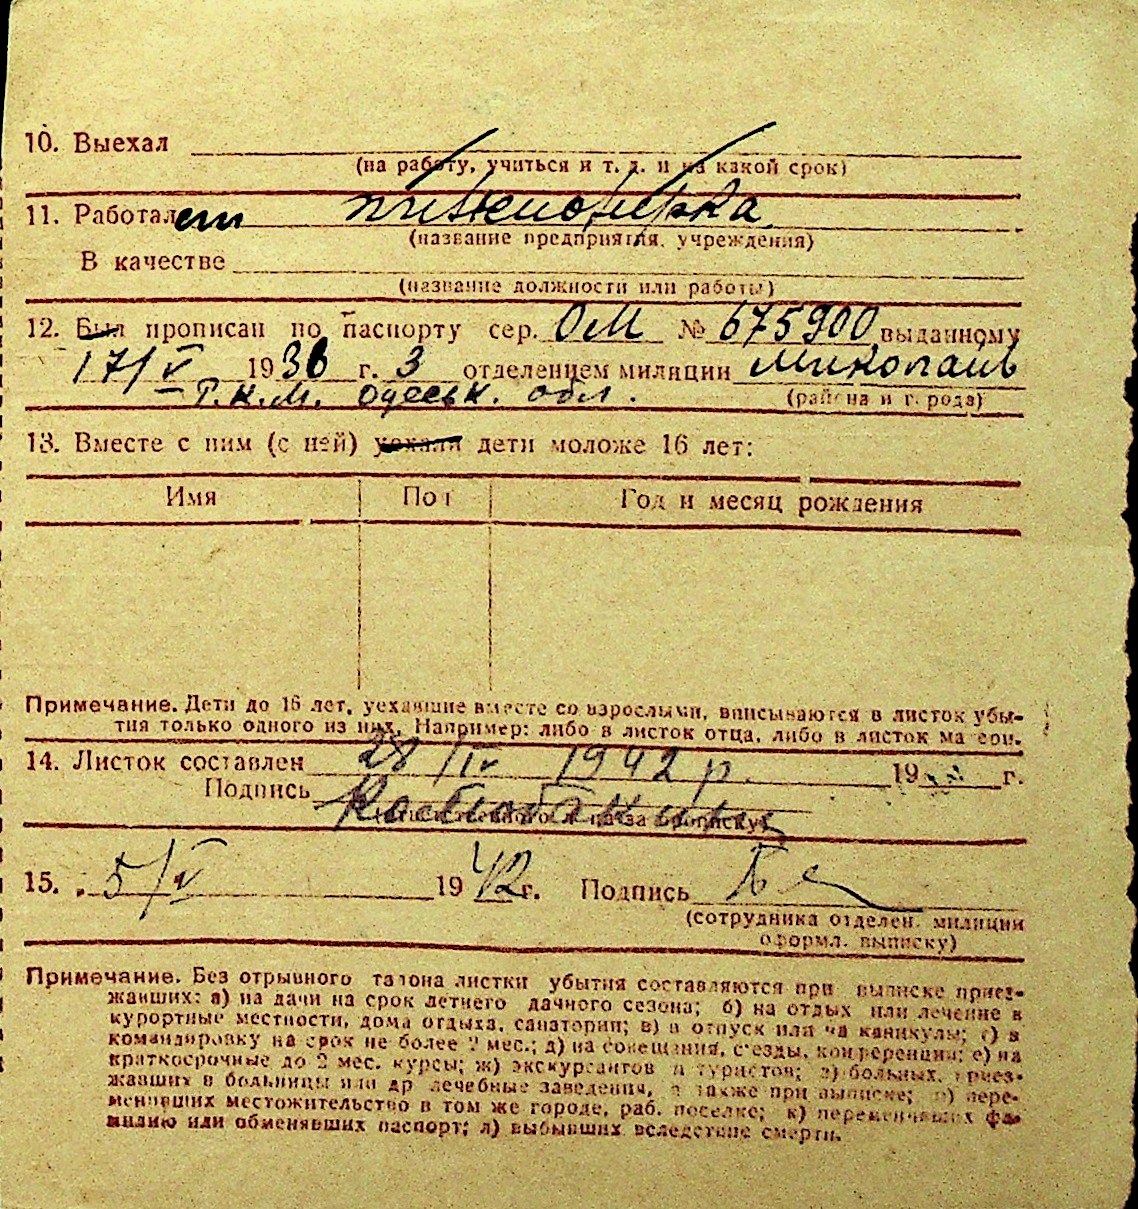 10. Выехал
(на работу, учиться и т. д. и на какой срок)
11. Работает
(название предприятия, учреждения)
В качестве
(название должности или работы)
12. Был прописан по паспорту сер. ОМ № 675900 выданному
17/V 1936 г. 3 отделением милиции Миколаїв
(района и города)
Р.К.М. Одеськ. обл.
13. Вместе с ним (с ней) уехали дети моложе 16 лет:
Имя Пол Год и месяц рождения
Примечание. Дети до 16 лет, уехавшие вместе со взрослыми, вписываются в листок убы-
тия только одного из них. Например: либо в листок отца, либо в листок матери.
14. Листок составлен 28/IV 1942 р. 19 г.
Подпись
15. 5/V 1942 г. Подпись
(сотрудника отделен. милиции
оформл. выписку)
Примечание. Без отрывного талона листки убытия составляются при выписке приез-
жавших: а) на дачи на срок летнего дачного сезона; б) на отдых или лечение в
курортные местности, дома отдыха, санатории; в) в отпуск или на каникулы; г) в
командировку на срок не более 2 мес.; д) на совещания, с'езды, конференции; е) на
краткосрочные до 2 мес. курсы; ж) экскурсантов и туристов; з) больных, приез-
жавших в больницы или др лечебные заведения, а также при выписке; и) пере-
менивших местожительство в том же городе, раб. поселке; к) переменивших фа-
милию или обменявших паспорт; л) выбывших вследствие смерти.